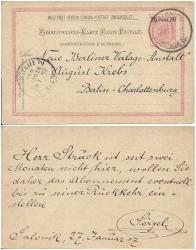 WELTPOST-VEREIN (UNION POSTALE UNIVERSELLE)
CORRESPONDENZ-KARTE (CARTE POSTALE)
20 Para 20
An
Neue Berliner Verlags-Anstalt
August Krebs
Berlin-Charlottenburg
Herr Struck ist seit zwei
Monaten nicht hier, wollen Sie
daher das Abonnement eventuell
bis zu seiner Rückkehr ein-
stellen
Salonik, 27 Januar 07